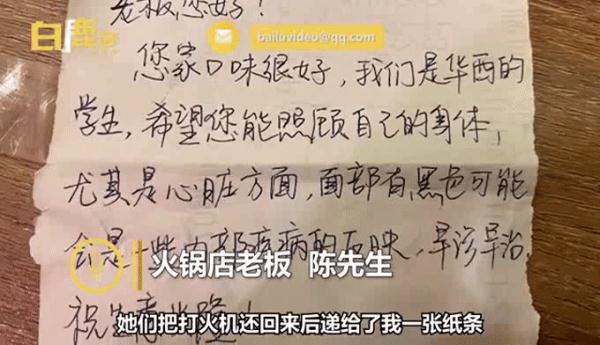 老板您好！
白鹿
bailuvideo@qq.com
您家口味很好，我们是华西的
学生，希望您能照顾自己的身体，
尤其是心脏方面，面部有黑色可能
会是一些内部疾病的反映，早诊早治，
火锅店老板 陈先生
祝生意兴隆！
她们把打火机还回来后递给了我一张纸条